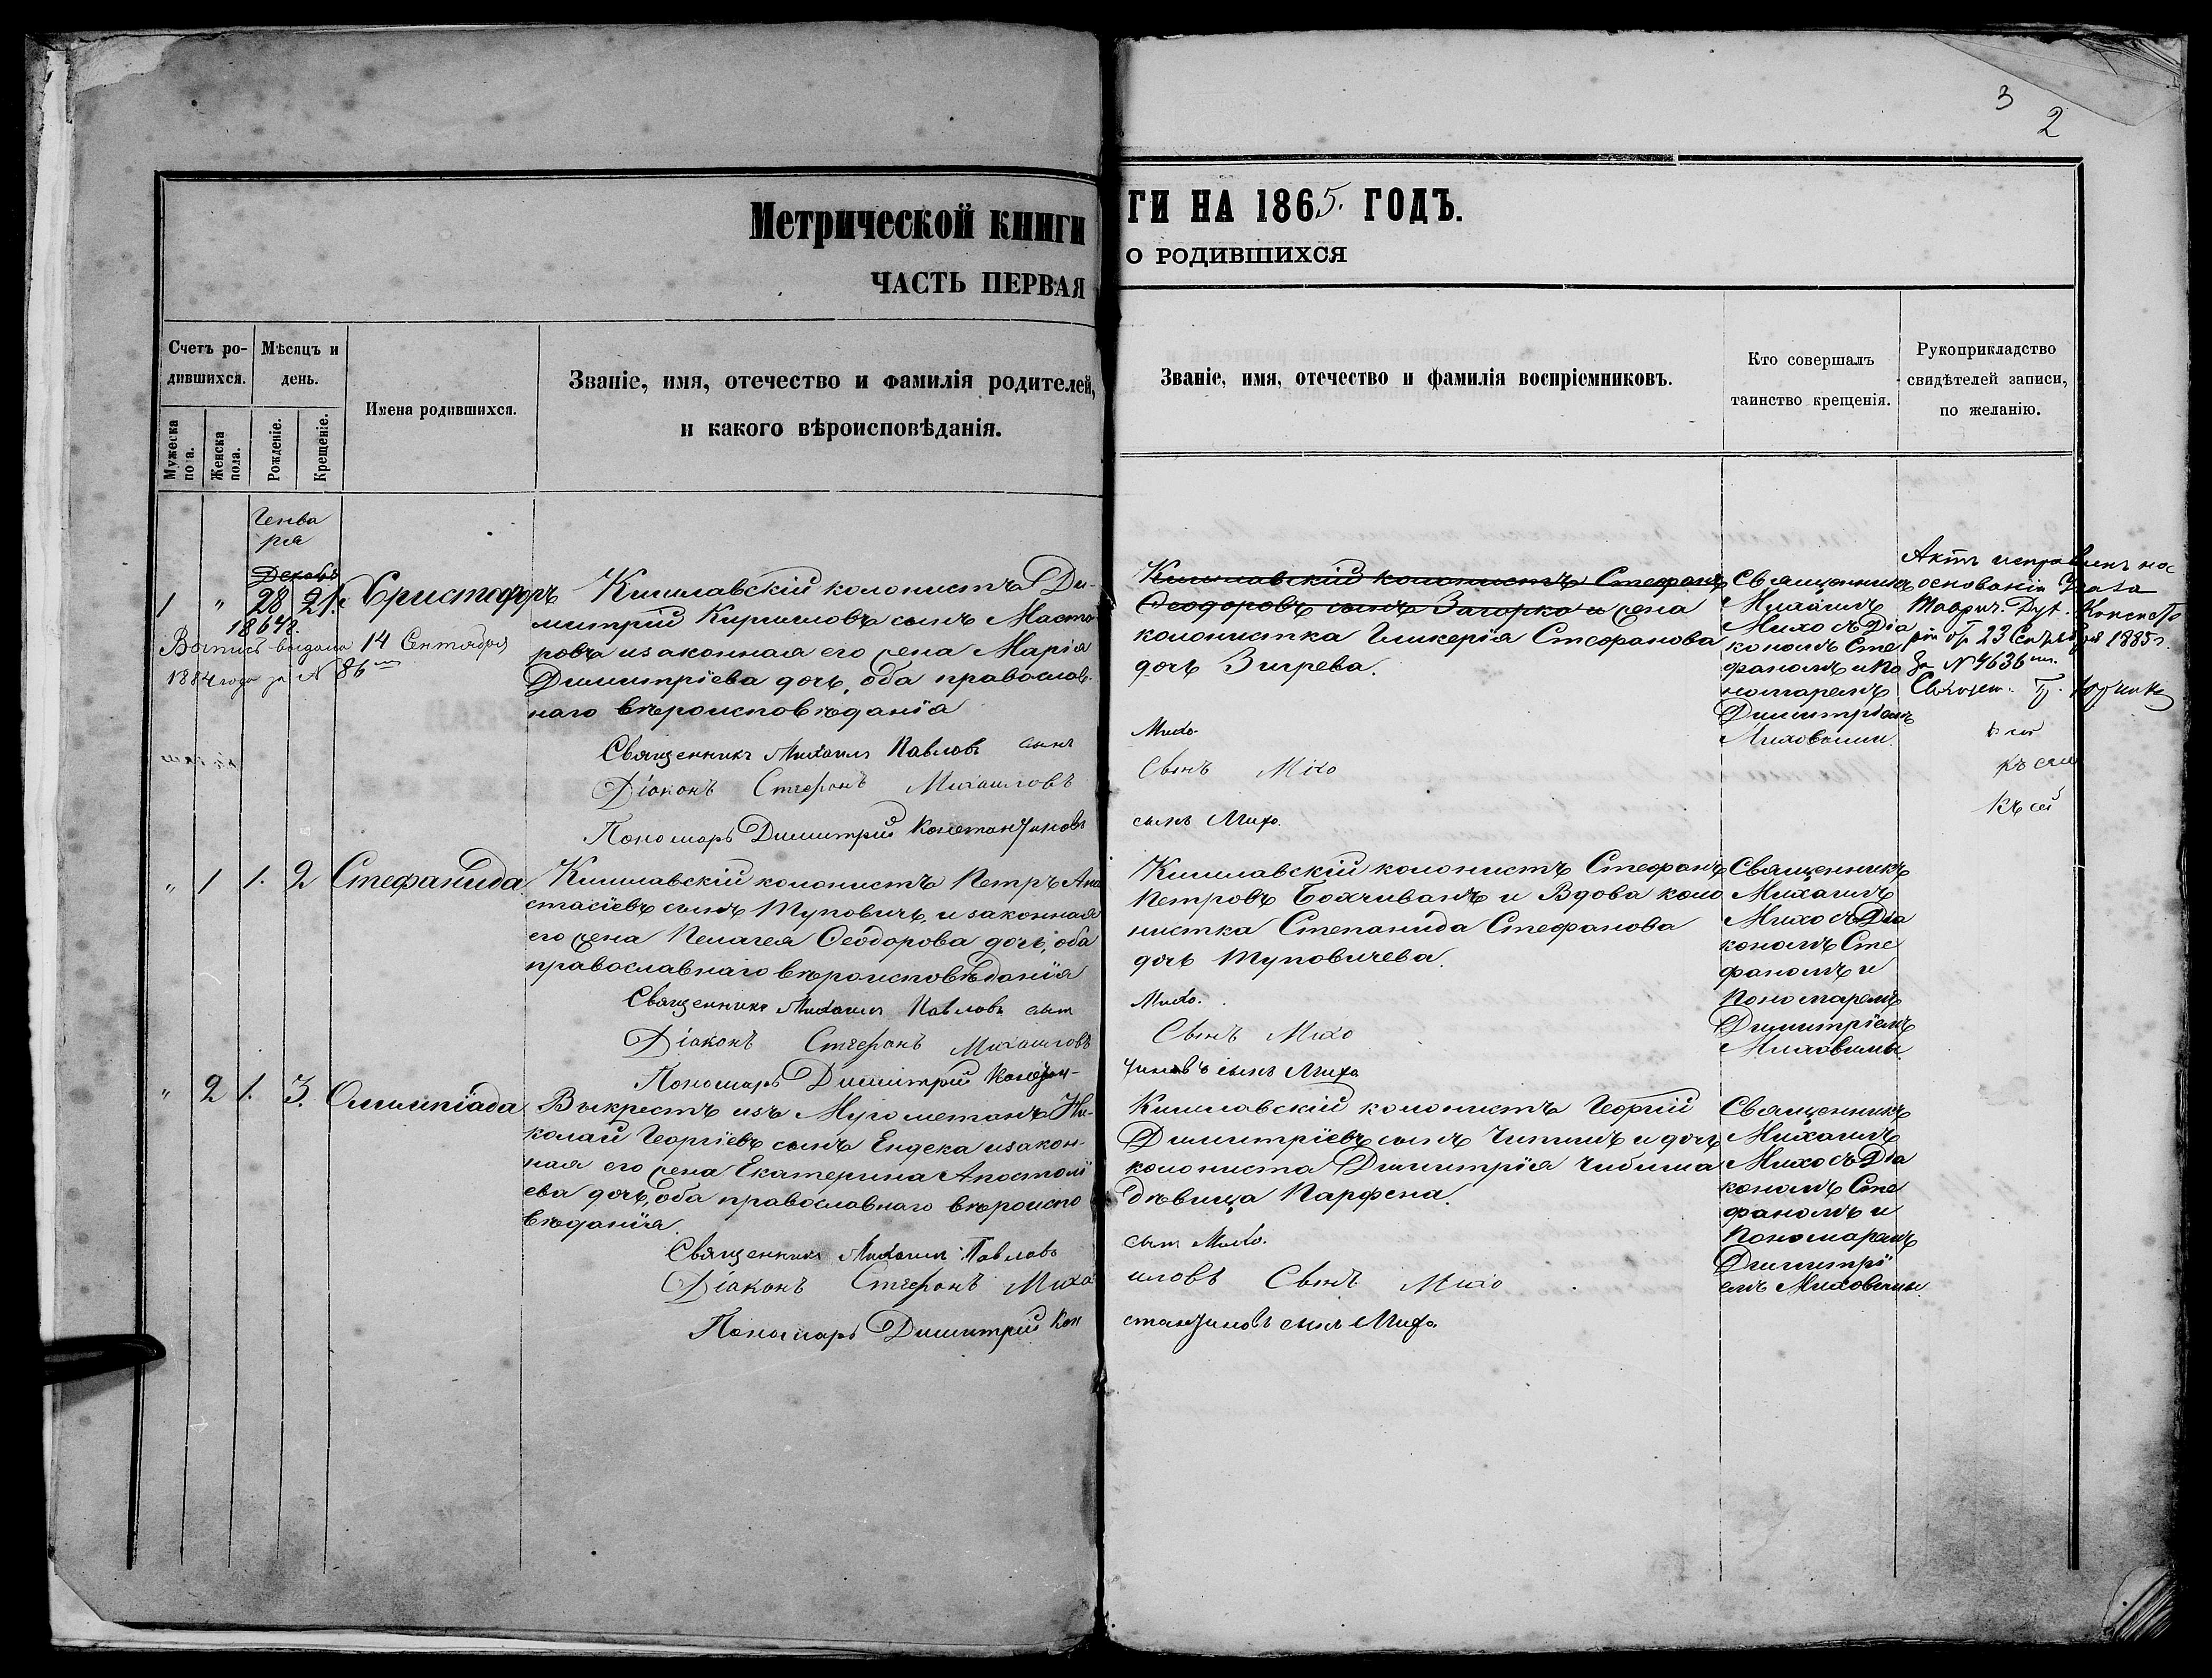 3
2
Метрической книги
ЧАСТЬ ПЕРВАЯ
ГИ НА 1865. ГОДЪ.
О РОДИВШИХСЯ
Счетъ ро-
дившихся.
Мѣсяцъ и
день.
Мужеска
пола.
Женска
пола.
Рожденіе.
Крещеніе.
Имена родившихся.
Званіе, имя, отечество и фамилія родителей,
и какого вѣроисповѣданія.
Званіе, имя, отечество и фамилія воспріемниковъ.
Кто совершалъ
таинство крещенія.
Рукоприкладство
свидѣтелей записи,
по желанію.
Генва
ря
Декабр
1 " 28 21. Христофоръ
1864г.
Выпись выдана 14 Сентября
1884 года за № 86
Кишлавскій колонистъ Ди-
митрій Кирилловъ сынъ Масто
ровъ изаконная его жена Марія
Димитріева дочь, оба православ-
наго вѣроисповѣданія
Священникъ Михаилъ Павловъ сынъ
Діаконъ Стефанъ Михаиловъ
Пономарь Димитрій Константиновъ
Кишлавскій колонистъ Стефанъ
Феодоровъ сынъ Загорко и жена
колонистка Гликерія Стефанова
дочь Зигрева.
Михо.
Сынъ Михо
сынъ Михо.
Священникъ
Михаилъ
Михо съ Діа
кономъ Сте
фаномъ и По
номаремъ
Димитріемъ
Миховыми.
Актъ исправленъ на
основаніи Указа
Таврич. Дух. Консисто
ріи отъ 23 Сентября 1885 г.
За № 4636
къ сей
къ сей
" 1 1. 2 Стефанида
Кишлавскій колонистъ Петръ Ана
стасіевъ сынъ Туповичъ, и законная
его жена Пелагея Феодорова дочь, оба
православнаго вѣроисповѣданія
Священникъ Михаилъ Павловъ сынъ
Діаконъ Стефанъ Михаиловъ
Пономарь Димитрій Констан-
Кишлавскій колонистъ Стефанъ
Петровъ Бохчиванъ и Вдова коло
нистка Степанида Стефанова
дочь Туповичева.
Михо.
Сынъ Михо
тиновъ сынъ Михо
Священникъ
Михаилъ
Михо съ Діа
кономъ Сте
фаномъ и
Пономаремъ
Димитріемъ
Миховыми
" 2 1. 3. Олимпіада
Выкрестъ изъ Мугометанъ Ни-
колай Георгіевъ сынъ Ендека изакон-
ная его жена Екатерина Апостолі
ева дочь, оба православнаго вѣроиспо
вѣданія
Священникъ Михаилъ Павловъ
Діаконъ Стефанъ Миха
Пономарь Димитрій Кон
Кишлавскій колонистъ Георгій
Димитріевъ сынъ Чипишъ и дочь
колониста Димитрія Чибиша
дѣвица Парфена.
сынъ Михо.
иловъ Сынъ Михо
стантиновъ сынъ Михо.
Священникъ
Михаилъ
Михо съ Діа
кономъ Сте
фаномъ и
Пономаремъ
Димитрі
емъ Миховыми